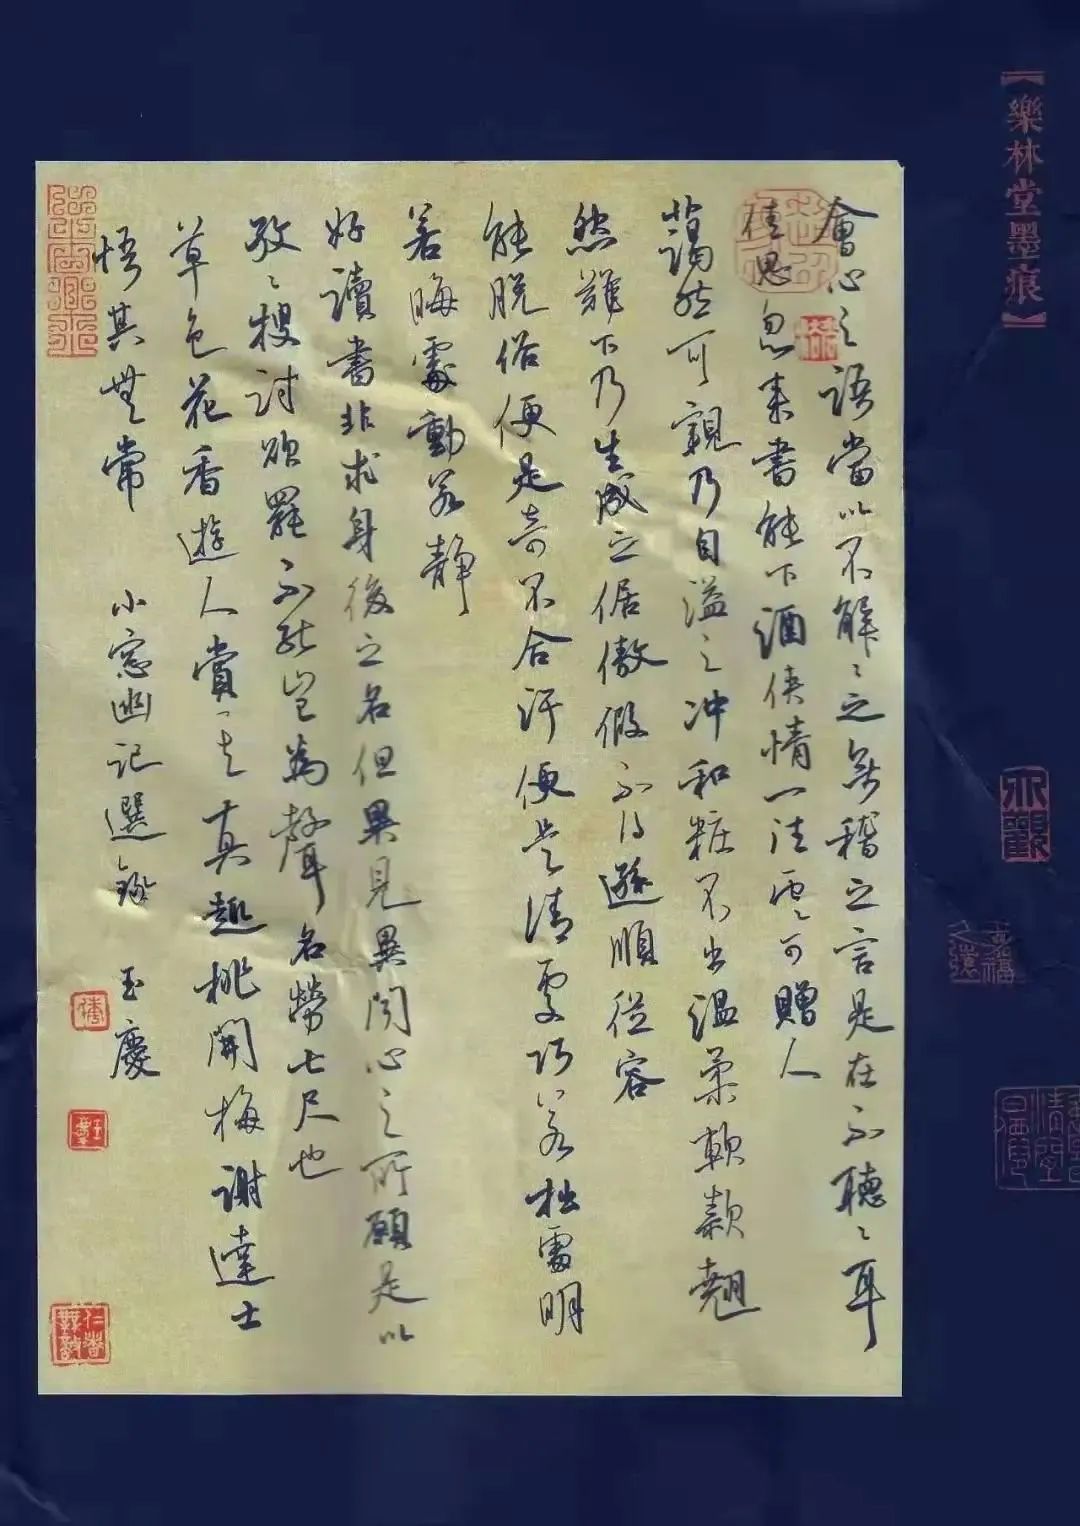 【樂林堂墨痕】
會心之語當以不解〻之無稽之言是在不聽〻耳
佳思忽來書能下酒俠情一往雲可贈人
藹然可親乃自溢之冲和粧不出溫柔軟款翹
然難下乃生成之倨傲假不得遜順從容
能脫俗便是奇不合汙便是清處巧若拙處明
若晦處動若靜
好讀書非求身後之名但異見異聞心之所願是以
孜〻搜討欲罷不能豈為聲名勞七尺也
草色花香遊人賞其真趣桃開梅謝達士
悟其無常 小窓幽記選錄 玉慶